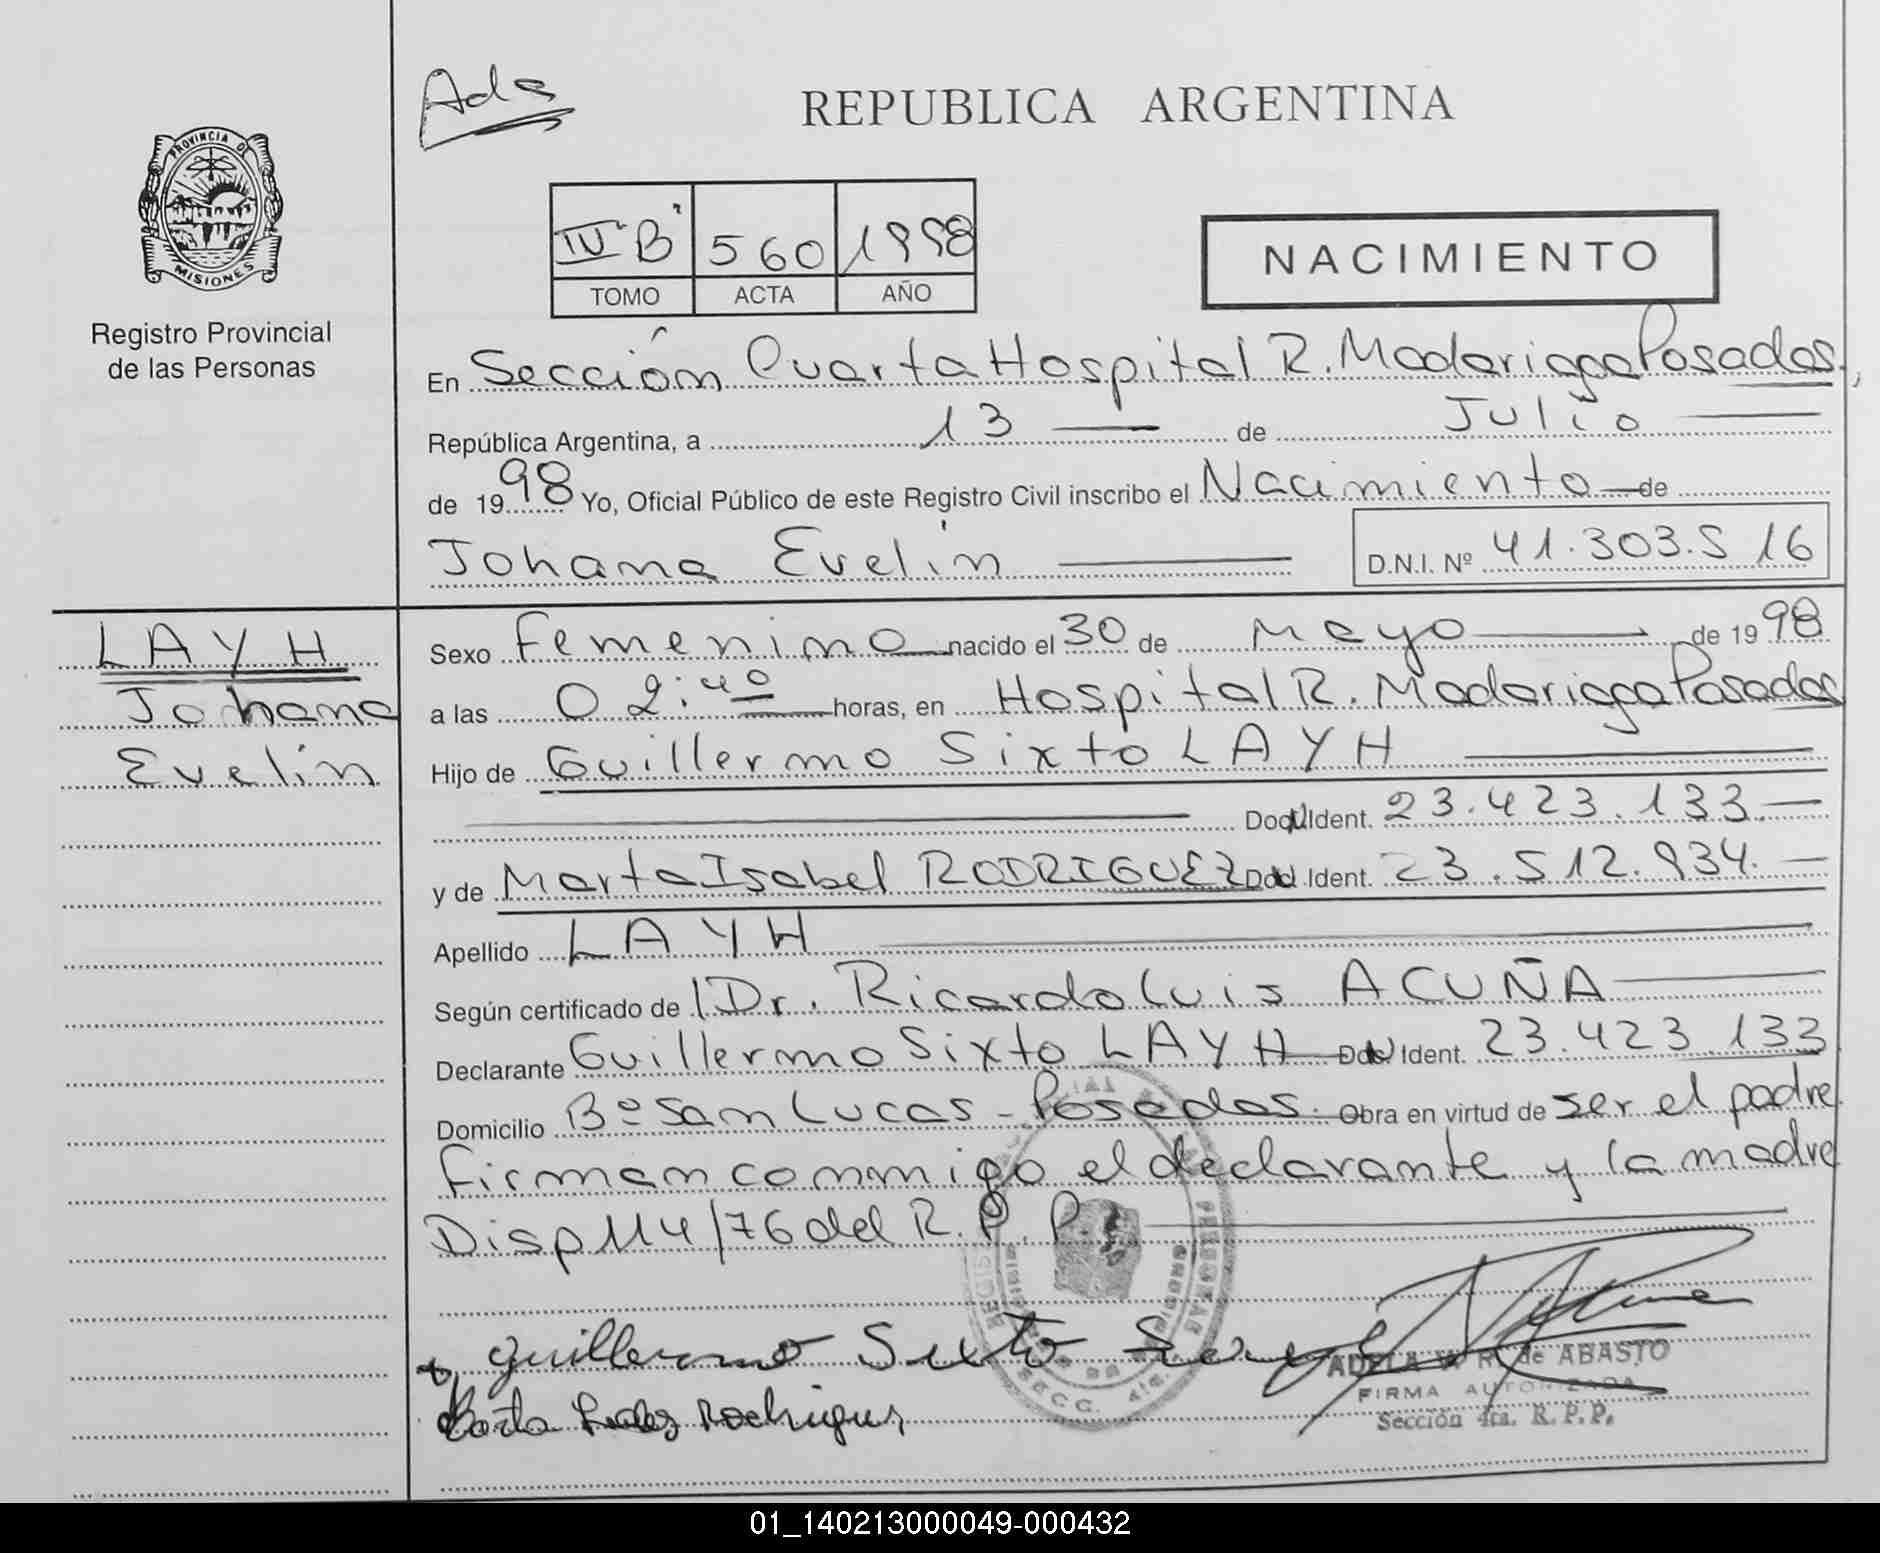 Ada
REPUBLICA ARGENTINA
PROVINCIA DE
MISIONES
Registro Provincial
de las Personas
IV "B" 560 1998
TOMO ACTA AÑO
NACIMIENTO
En Sección Cuarta Hospital R. Madariaga Posadas,
República Argentina, a 13 de Julio
de 1998 Yo, Oficial Público de este Registro Civil inscribo el Nacimiento de
Johana Evelin D.N.I. Nº 41.303.516
LAYH
Johana
Evelin
Sexo Femenino nacido el 30 de Mayo de 1998
a las 02:40 horas, en Hospital R. Madariaga Posadas
Hijo de Guillermo Sixto LAYH
Docu Ident. 23.423.133.
y de Marta Isabel RODRIGUEZ Docu Ident. 23.512.934.
Apellido LAYH
Según certificado de Dr. Ricardo Luis ACUÑA
Declarante Guillermo Sixto LAYH Docu Ident. 23.423.133
Domicilio Bº San Lucas - Posadas. Obra en virtud de ser el padre
firman conmigo el declarante y la madre
Disp 114/76 del R. P. P.
Guillermo Sixto
Rodrigues
ADELA W R de ABASTO
FIRMA AUTORIZADA
Sección 4ta. R. P. P.
01_140213000049-000432